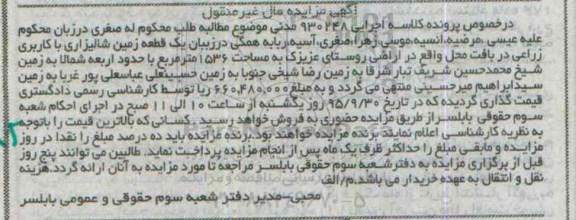 آگهی مزایده مال غیر منقول
درخصوص پرونده کلاسه اجرایی ۹۳۰۲۴۸ مدنی موضوع مطالبه طلب محکوم له صغری درزبان محکوم
علیه عیسی ،مرضیه،انسیه،موسی،زهرا،صغری،آسیه،ربابه همگی درزیبان یک قطعه زمین شالیزاری با کاربری
زراعی در بافت محل واقع در اراضی روستای عزیزک به مساحت ۱۵۳۶مترمربع با حدود اربعه شمالا به زمین
شیخ محمدحسین شریف تبار شرقا به زمین رضا شیخی جنوبا به زمین حسینعلی عباسعلی پور غربا به زمین
سیدابراهیم میرحسینی منتهی می گردد و به مبلغ ۶۶۰,۴۸۰,۰۰۰ ریا توسط کارشناسی رسمی دادگستری
قیمت گذاری گردیده که در تاریخ ۹۵/۹/۳۰ روز یکشنبه از ساعت ۱۰ الی ۱۱ صبح در اجرای احکام شعبه
سوم حقوقی بابلسر از طریق مزایده حضوری به فروش خواهد رسید . کسانی که بالاترین قیمت را باتوجه
به نظریه کارشناسی اعلام نمایند برنده مزایده خواهند بود.برنده مزایده باید ده درصد مبلغ را نقدا در روز
مزایده و مابقی مبلغ را حداکثر ظرف یک ماه پس از انجام مزایده پرداخت نماید. طالبین می توانند پنج روز
قبل از برگزاری مزایده به دفتر شعبه سوم حقوقی بابلسر مراجعه تا مورد مزایده به آنان ارائه گردد.هزینه
نقل و انتقال به عهده خریدار می باشد.م/الف
محبی-مدیر دفتر شعبه سوم حقوقی و عمومی بابلسر